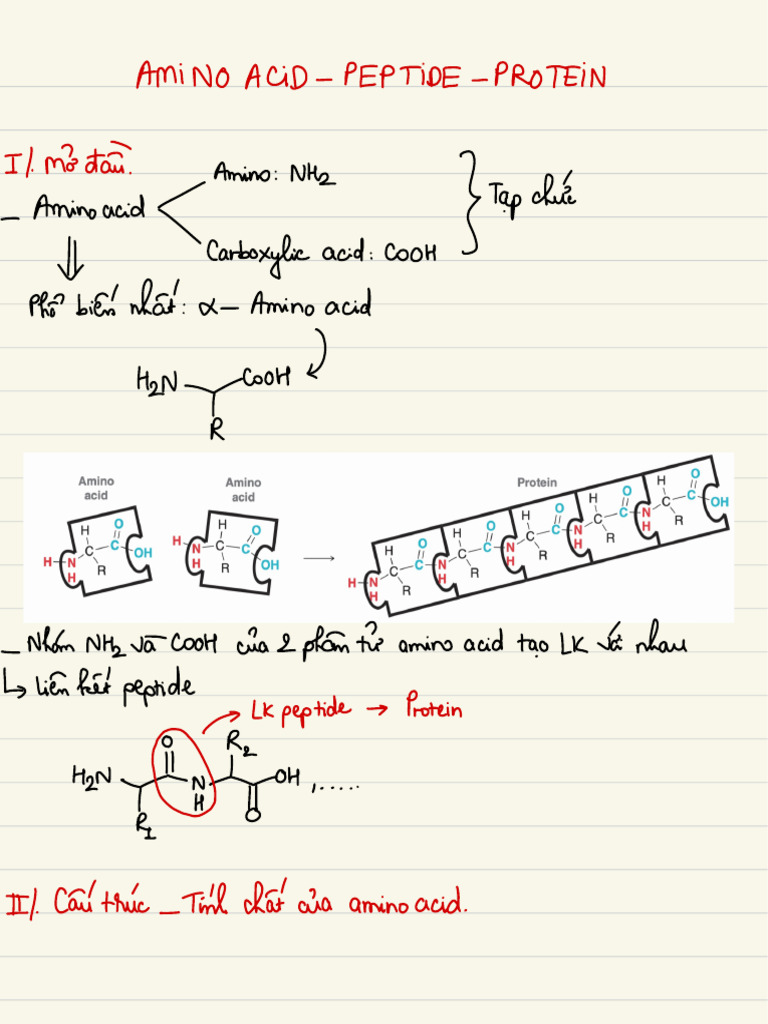 AMINO ACID – PEPTIDE – PROTEIN
I/. Mở đầu.
Amino: NH2
– Amino acid
Tạp chức
Carboxylic acid: COOH
⇓
Phổ biến nhất: α – Amino acid
H2N COOH
R
Amino acid
Amino acid
Protein
H O C C OH H N H R
H O C C OH H N H R
H N H H C R C O N H H C R C O N H H C R C O N H H C R C O N H H C R C O OH
– Nhóm NH2 và COOH của 2 phân tử amino acid tạo LK với nhau
↳ liên kết peptide
LK peptide → Protein
O R2
H2N N H OH , .....
R1 O
II/. Cấu trúc – Tính chất của amino acid.